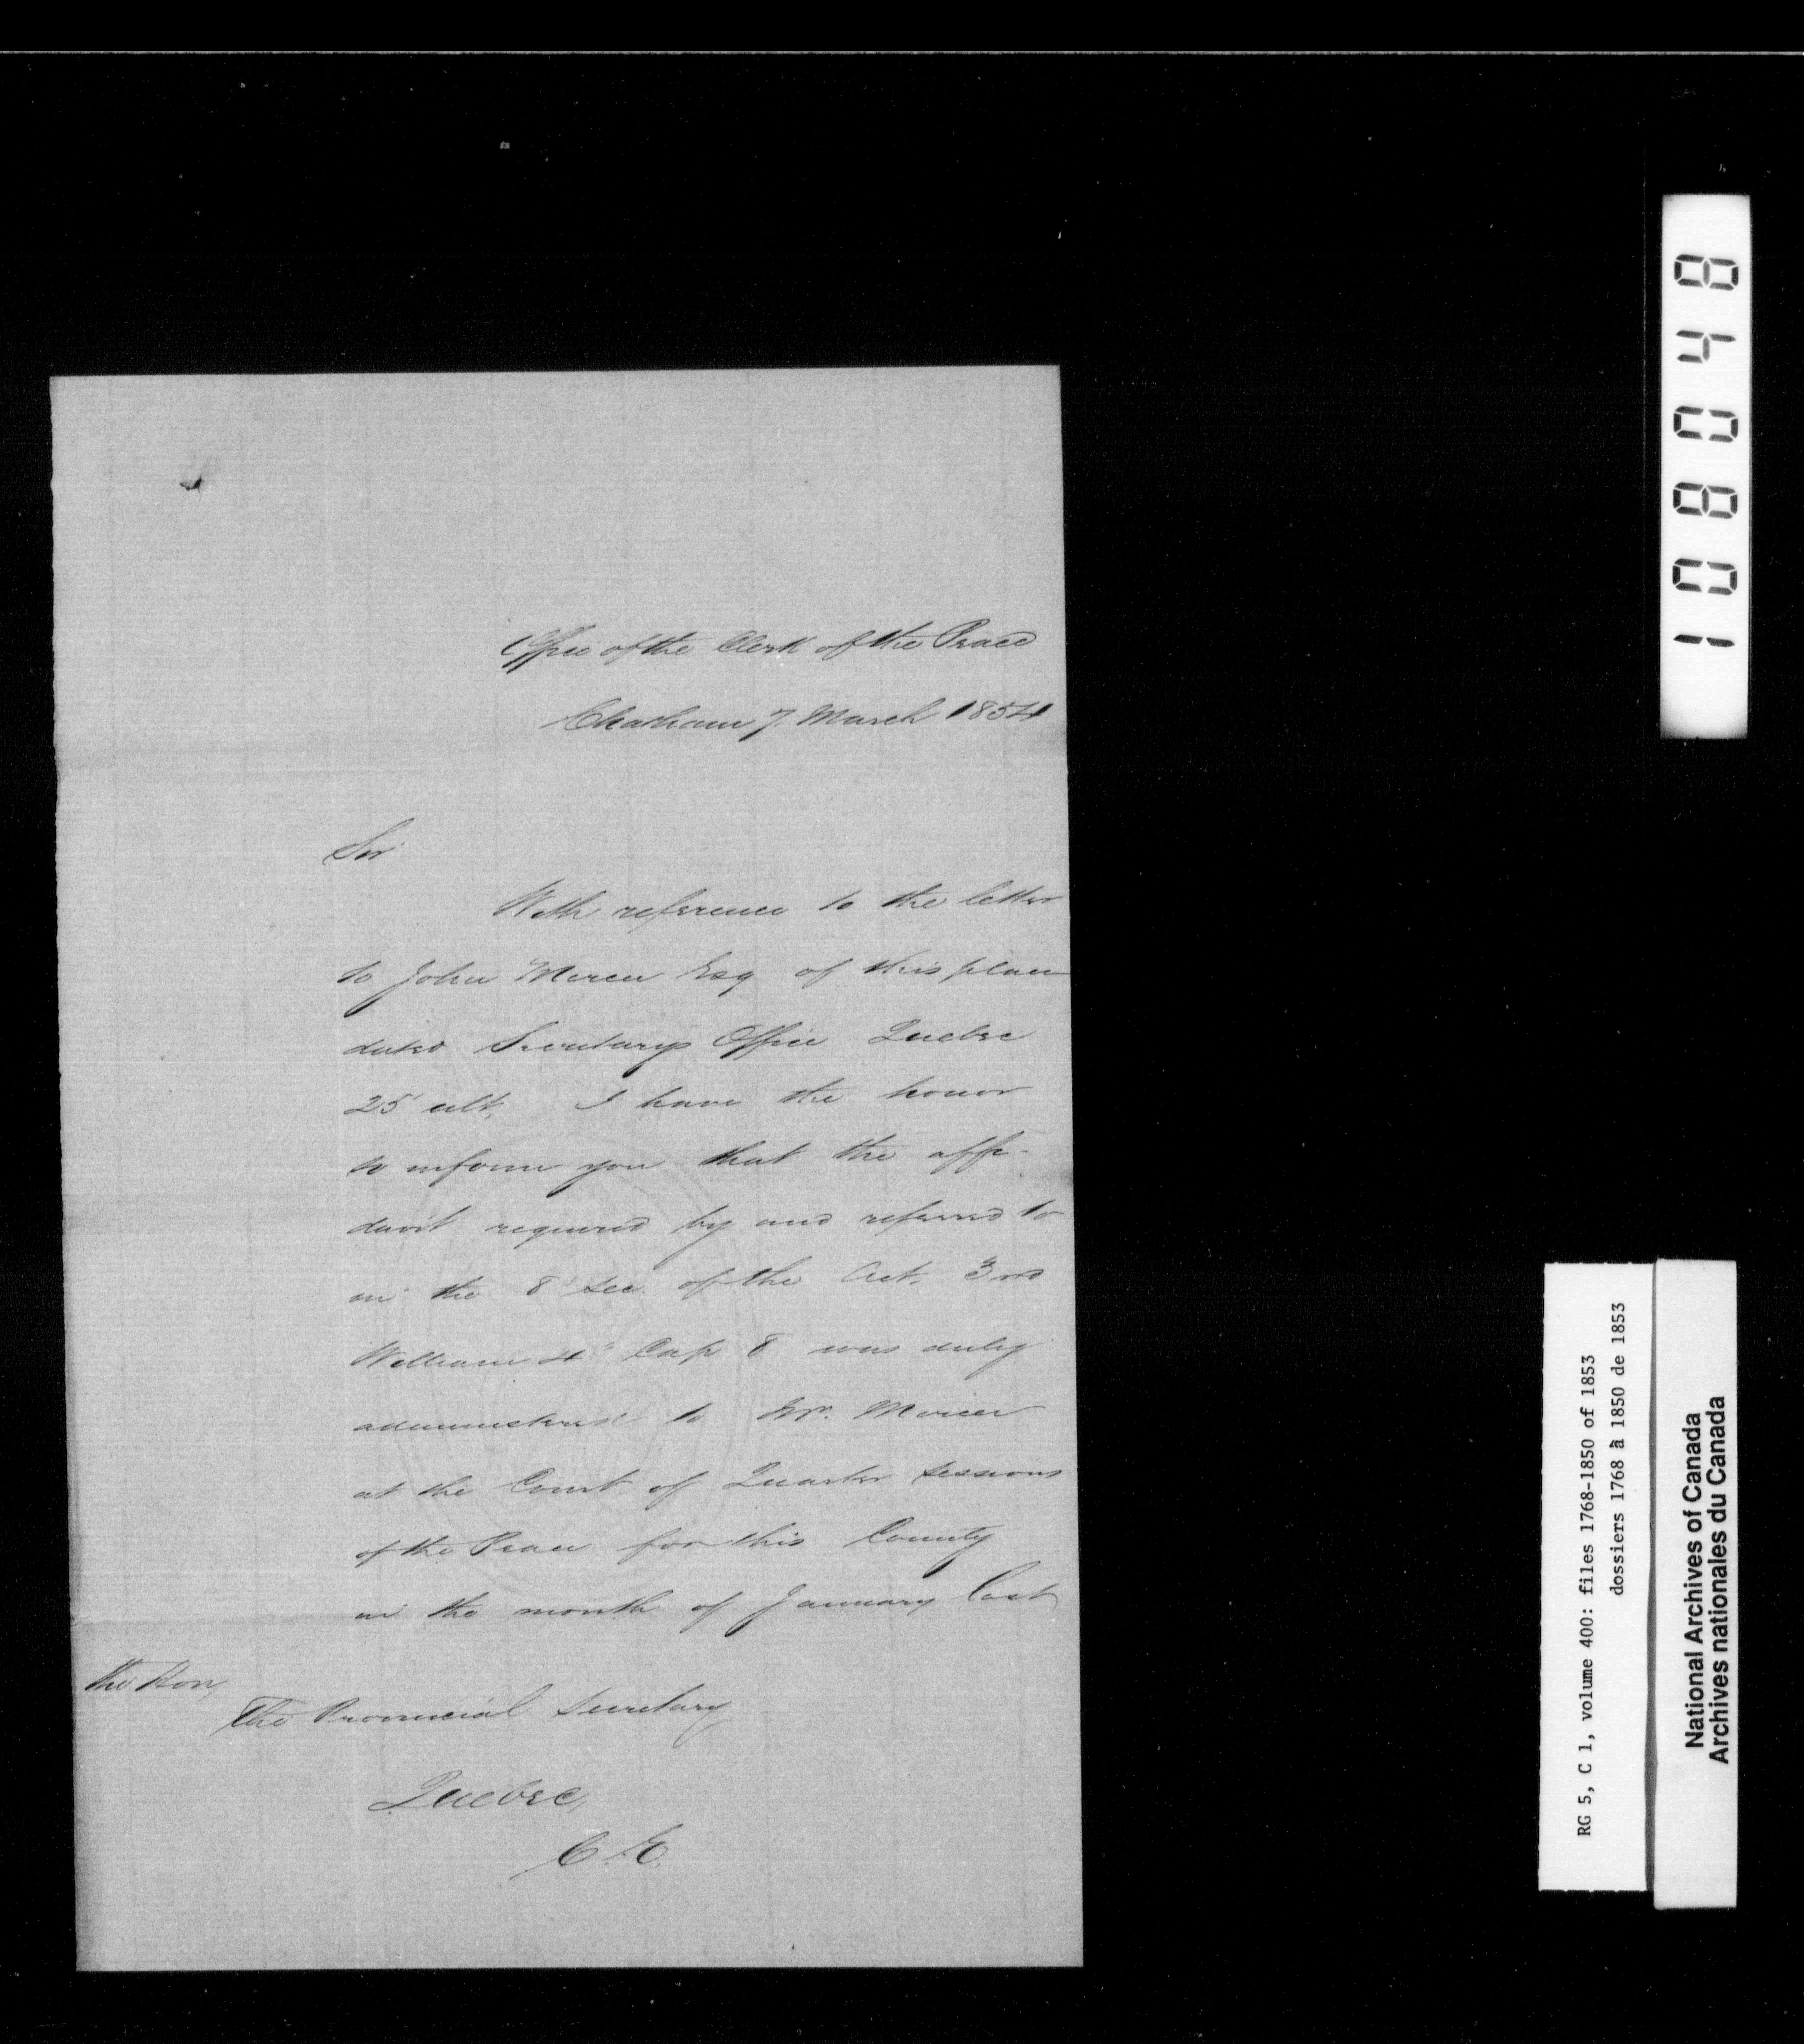 Office of the Clerk of the Peace
Chatham 7. March 1854
Sir
With reference to the letter
to John Mercer Esq of this place
dated Secretarys Office Quebec
25' ult. I have the honor
to inform you that the affi-
davit required by and referred to
in the 8' Sec. of the Act. 3rd
William 4" Cap 8 was duly
administered to Mr. Mercer
at the Court of Quarter Sessions
of the Peace for this County
in the month of January last
The Hon,
The Provincial Secretary
Quebec,
C. E.
1080048
RG 5, C 1, volume 400: files 1768-1850 of 1853
dossiers 1768 à 1850 de 1853
National Archives of Canada
Archives nationales du Canada